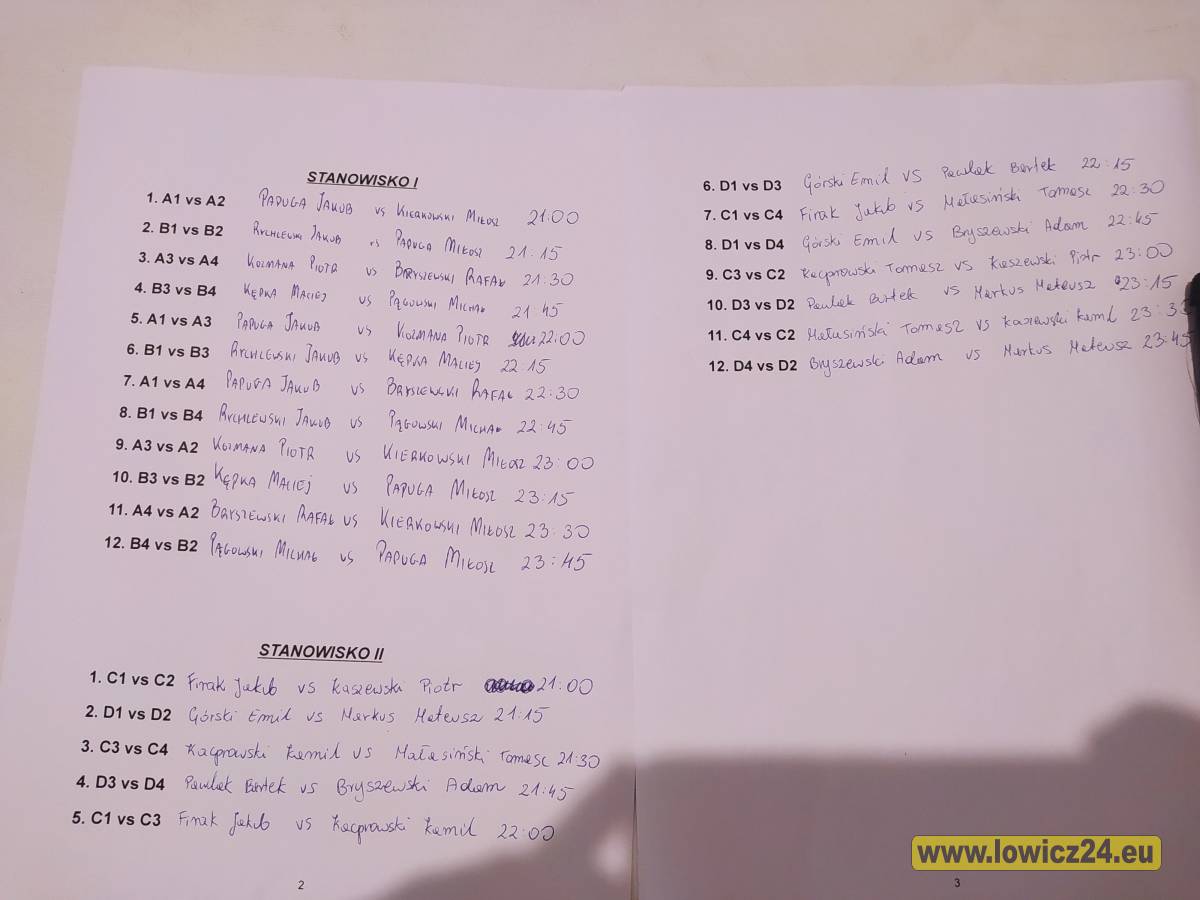 STANOWISKO I
1. A1 vs A2 PAPUGA JAKUB vs KIERKOWSKI MIŁOSZ 21:00
2. B1 vs B2 RYCHLEWSKI JAKUB vs PAPUGA MIŁOSZ 21:15
3. A3 vs A4 KOZMANA PIOTR vs BRYSZEWSKI RAFAŁ 21:30
4. B3 vs B4 KĘPKA MACIEJ vs PĄGOWSKI MICHAŁ 21:45
5. A1 vs A3 PAPUGA JAKUB vs KOZMANA PIOTR 22:00
6. B1 vs B3 RYCHLEWSKI JAKUB vs KĘPKA MACIEJ 22:15
7. A1 vs A4 PAPUGA JAKUB vs BRYSZEWSKI RAFAŁ 22:30
8. B1 vs B4 RYCHLEWSKI JAKUB vs PĄGOWSKI MICHAŁ 22:45
9. A3 vs A2 KOZMANA PIOTR vs KIERKOWSKI MIŁOSZ 23:00
10. B3 vs B2 KĘPKA MACIEJ vs PAPUGA MIŁOSZ 23:15
11. A4 vs A2 BRYSZEWSKI RAFAŁ vs KIERKOWSKI MIŁOSZ 23:30
12. B4 vs B2 PĄGOWSKI MICHAŁ vs PAPUGA MIŁOSZ 23:45
STANOWISKO II
1. C1 vs C2 Firak Jakub vs Kaszewski Piotr 21:00
2. D1 vs D2 Górski Emil vs Markus Mateusz 21:15
3. C3 vs C4 Kacprowski Kamil vs Małasiński Tomasz 21:30
4. D3 vs D4 Pawlak Bartek vs Bryszewski Adam 21:45
5. C1 vs C3 Firak Jakub vs Kacprowski Kamil 22:00
2
6. D1 vs D3 Górski Emil VS Pawlak Bartek 22:15
7. C1 vs C4 Firak Jakub vs Małasiński Tomasz 22:30
8. D1 vs D4 Górski Emil vs Bryszewski Adam 22:45
9. C3 vs C2 Kacprowski Tomasz vs Kaszewski Piotr 23:00
10. D3 vs D2 Pawlak Bartek vs Markus Mateusz 23:15
11. C4 vs C2 Małasiński Tomasz vs Kaszewski Kamil 23:30
12. D4 vs D2 Bryszewski Adam vs Markus Mateusz 23:45
3
www.lowicz24.eu